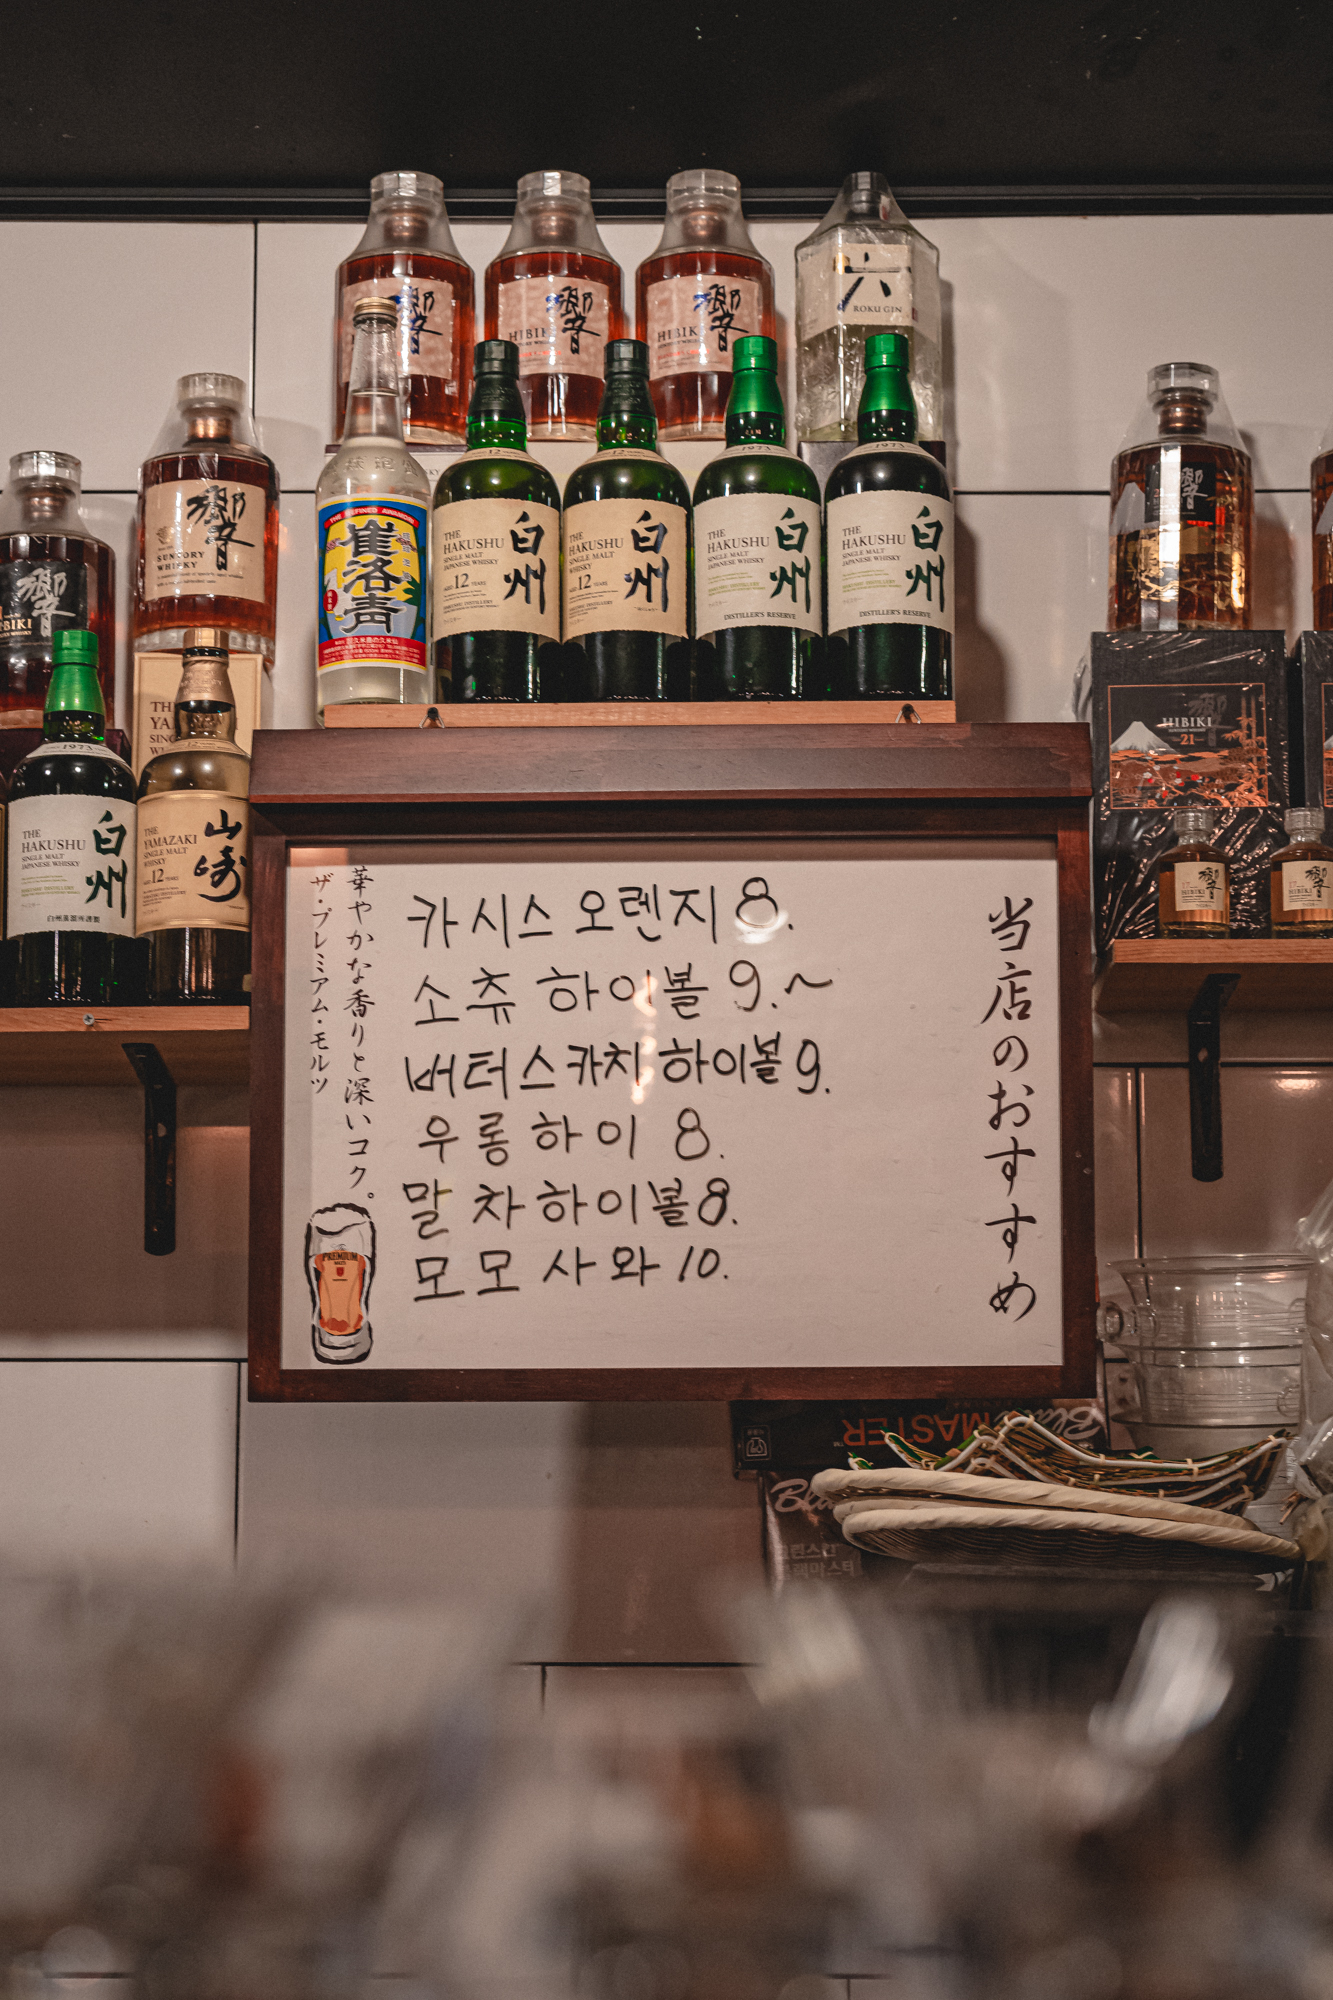 響
響
HIBIKI
響
HIBIKI
六
ROKU GIN
響
SUNTORY
WHISKY
響
HIBIKI
THE REFINED AWAMORI
崔洛靑
THE
HAKUSHU
SINGLE MALT
JAPANESE WHISKY
AGED 12 YEARS
白州
THE
HAKUSHU
SINGLE MALT
JAPANESE WHISKY
AGED 12 YEARS
白州
1973
THE
HAKUSHU
SINGLE MALT
JAPANESE WHISKY
白州
DISTILLER'S RESERVE
1973
THE
HAKUSHU
SINGLE MALT
JAPANESE WHISKY
白州
DISTILLER'S RESERVE
響
HIBIKI
21
1973
THE
HAKUSHU
SINGLE MALT
JAPANESE WHISKY
白州
THE
YAMAZAKI
SINGLE MALT
JAPANESE
WHISKY
AGED 12 YEARS
山崎
響
響
当店のおすすめ
카시스 오렌지 8.
소츄 하이볼 9.~
버터스카치 하이볼 9.
우롱하이 8.
말차하이볼 8.
모모 사와 10.
華やかな香りと深いコク。
ザ・プレミアム・モルツ
PREMIUM
MASTER